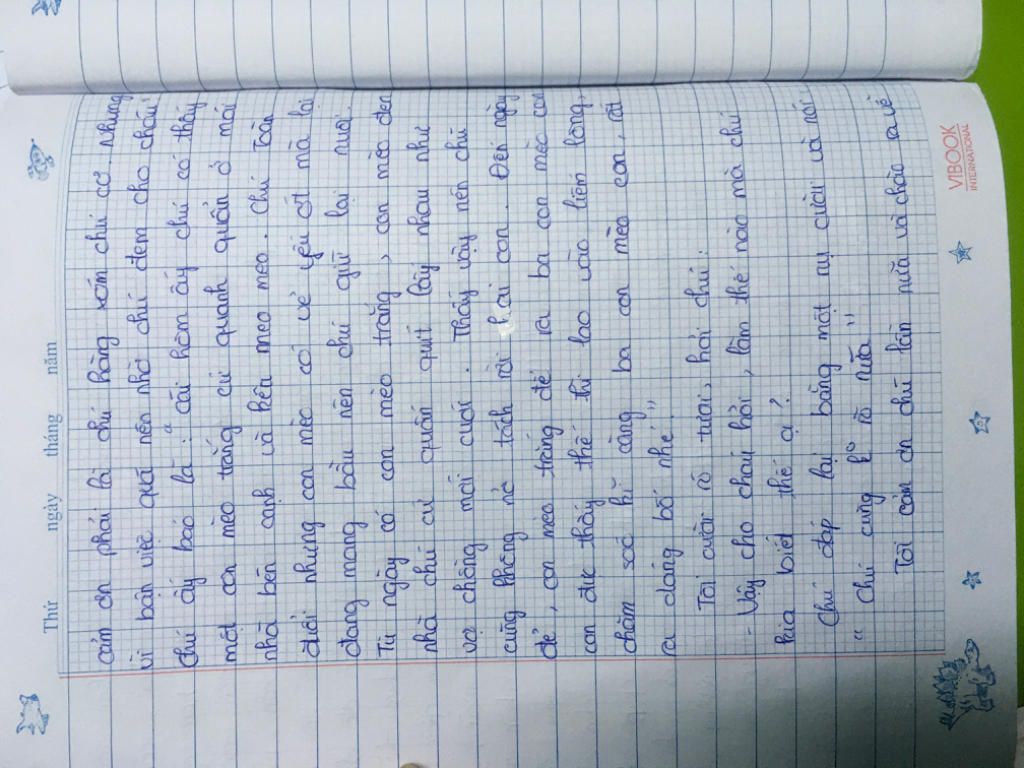 Thứ ngày tháng năm
cám ơn phải là chú hàng xóm chú cơ. Nhưng
vì bận việc quá nên nhờ chú đem cho cháu.
chú ấy bảo là: "cái hôm ấy chú có thấy
một con mèo trắng cứ quanh quẩn ở mái
nhà bên cạnh và kêu meo meo. Chú toàn
đuổi nhưng con mèo có vẻ yếu ớt mà lại
đang mang bầu nên chú giữ lại nuôi.
Từ ngày có con mèo trắng, con mèo đen
nhà chú cứ quấn quít lấy nhau như
vợ chồng mới cưới. Thấy vậy nên chú
cũng không nỡ tách rời hai con. Đến ngày
đẻ, con mèo trắng đẻ ra ba con mèo con
con đực thấy thế thì lao vào liếm lông,
chăm sóc kĩ càng ba con mèo con, rất
ra dáng bố nhé."
Tôi cười rõ tươi, hỏi chú:
- Vậy cho cháu hỏi, làm thế nào mà chú
kia biết thế ạ?
Chú đáp lại bằng một nụ cười và nói.
" Chú cũng k rõ nữa"
Tôi cản ơn chú lần nữa và chào ra về
VIBOOK
INTERNATIONAL